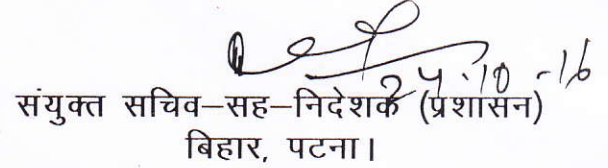 24.10.-16
संयुक्त सचिव–सह–निदेशक (प्रशासन)
बिहार, पटना।